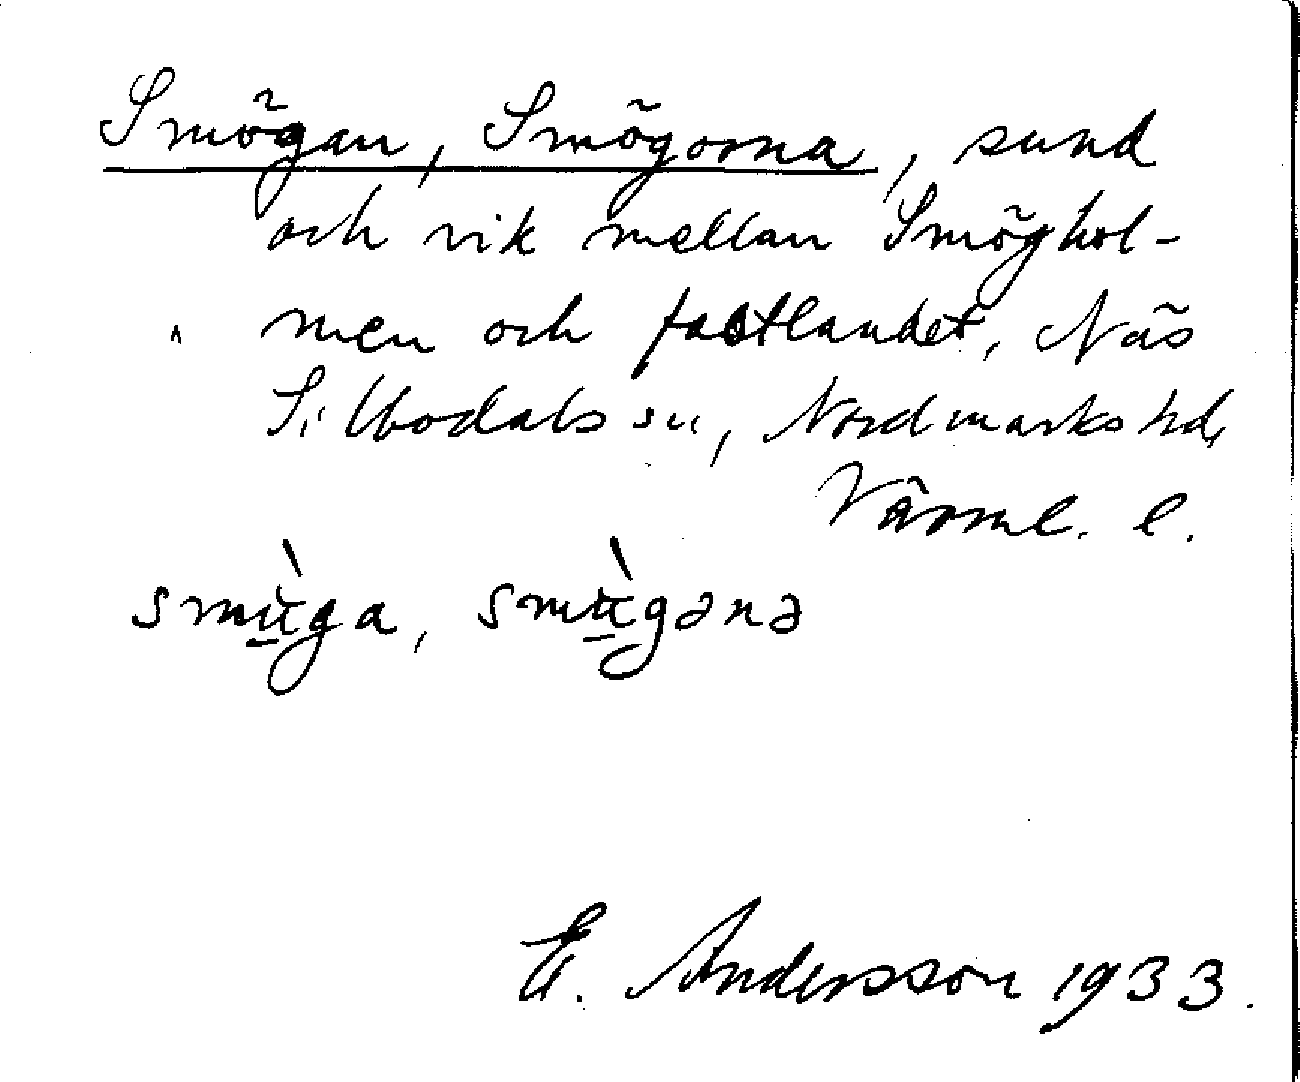 Smögan, Smögorna, sund
och vik mellan Smöghol-
men och fastlandet, Näs
Sillbodals sn, Nordmarks hd,
Värml. l.
smùga, smùgənə
E. Andersson 1933.